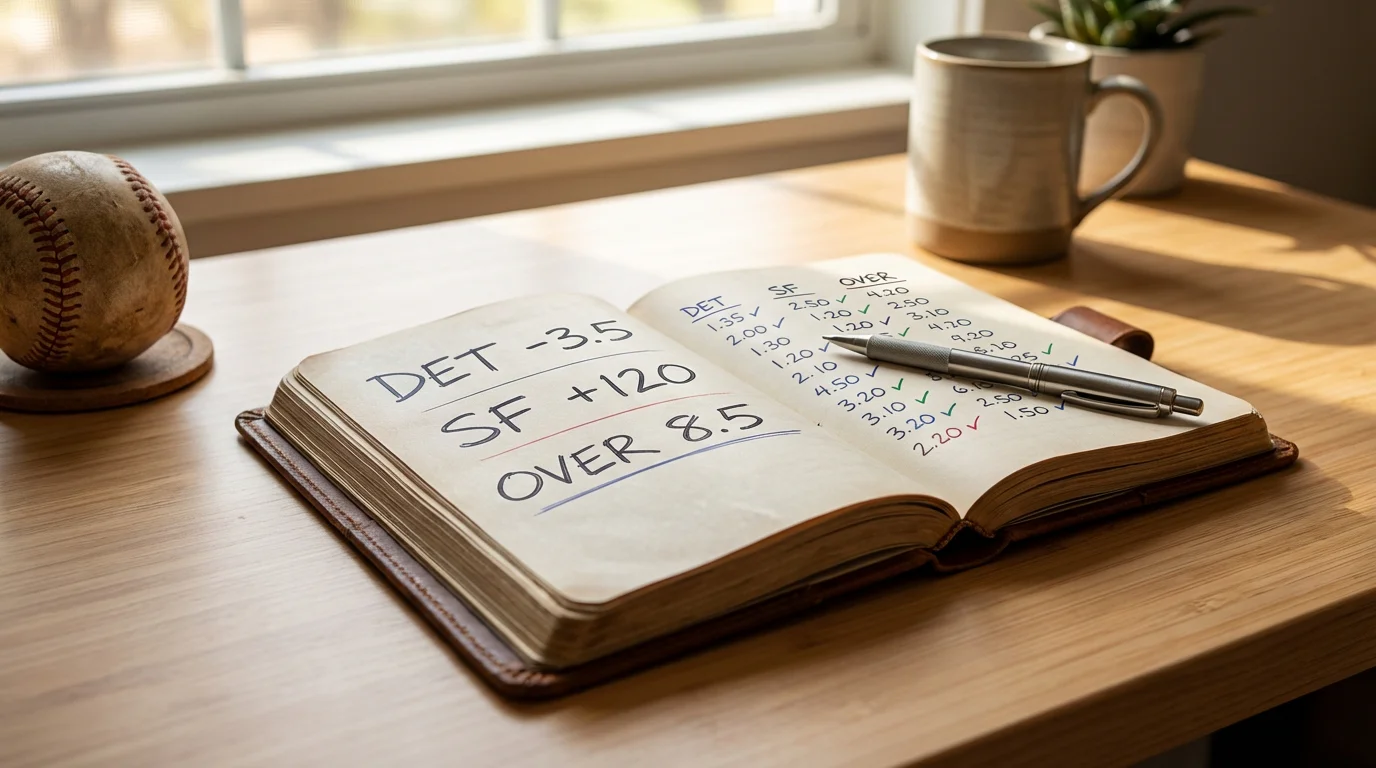 DET -3.5
SF +120
OVER 8.5
DET SF OVER
1.35 ✓ 2.50 ✓ 4.20
2.00 ✓ 1.20 ✓ 2.50
1.30 1.20 ✓ 3.10
1.20 ✓ 4.20
2.10 9.20
4.50 ✓
3.20 ✓
3.10 ✓ 2.50
3.20 ✓ 1.50
2.20 ✓